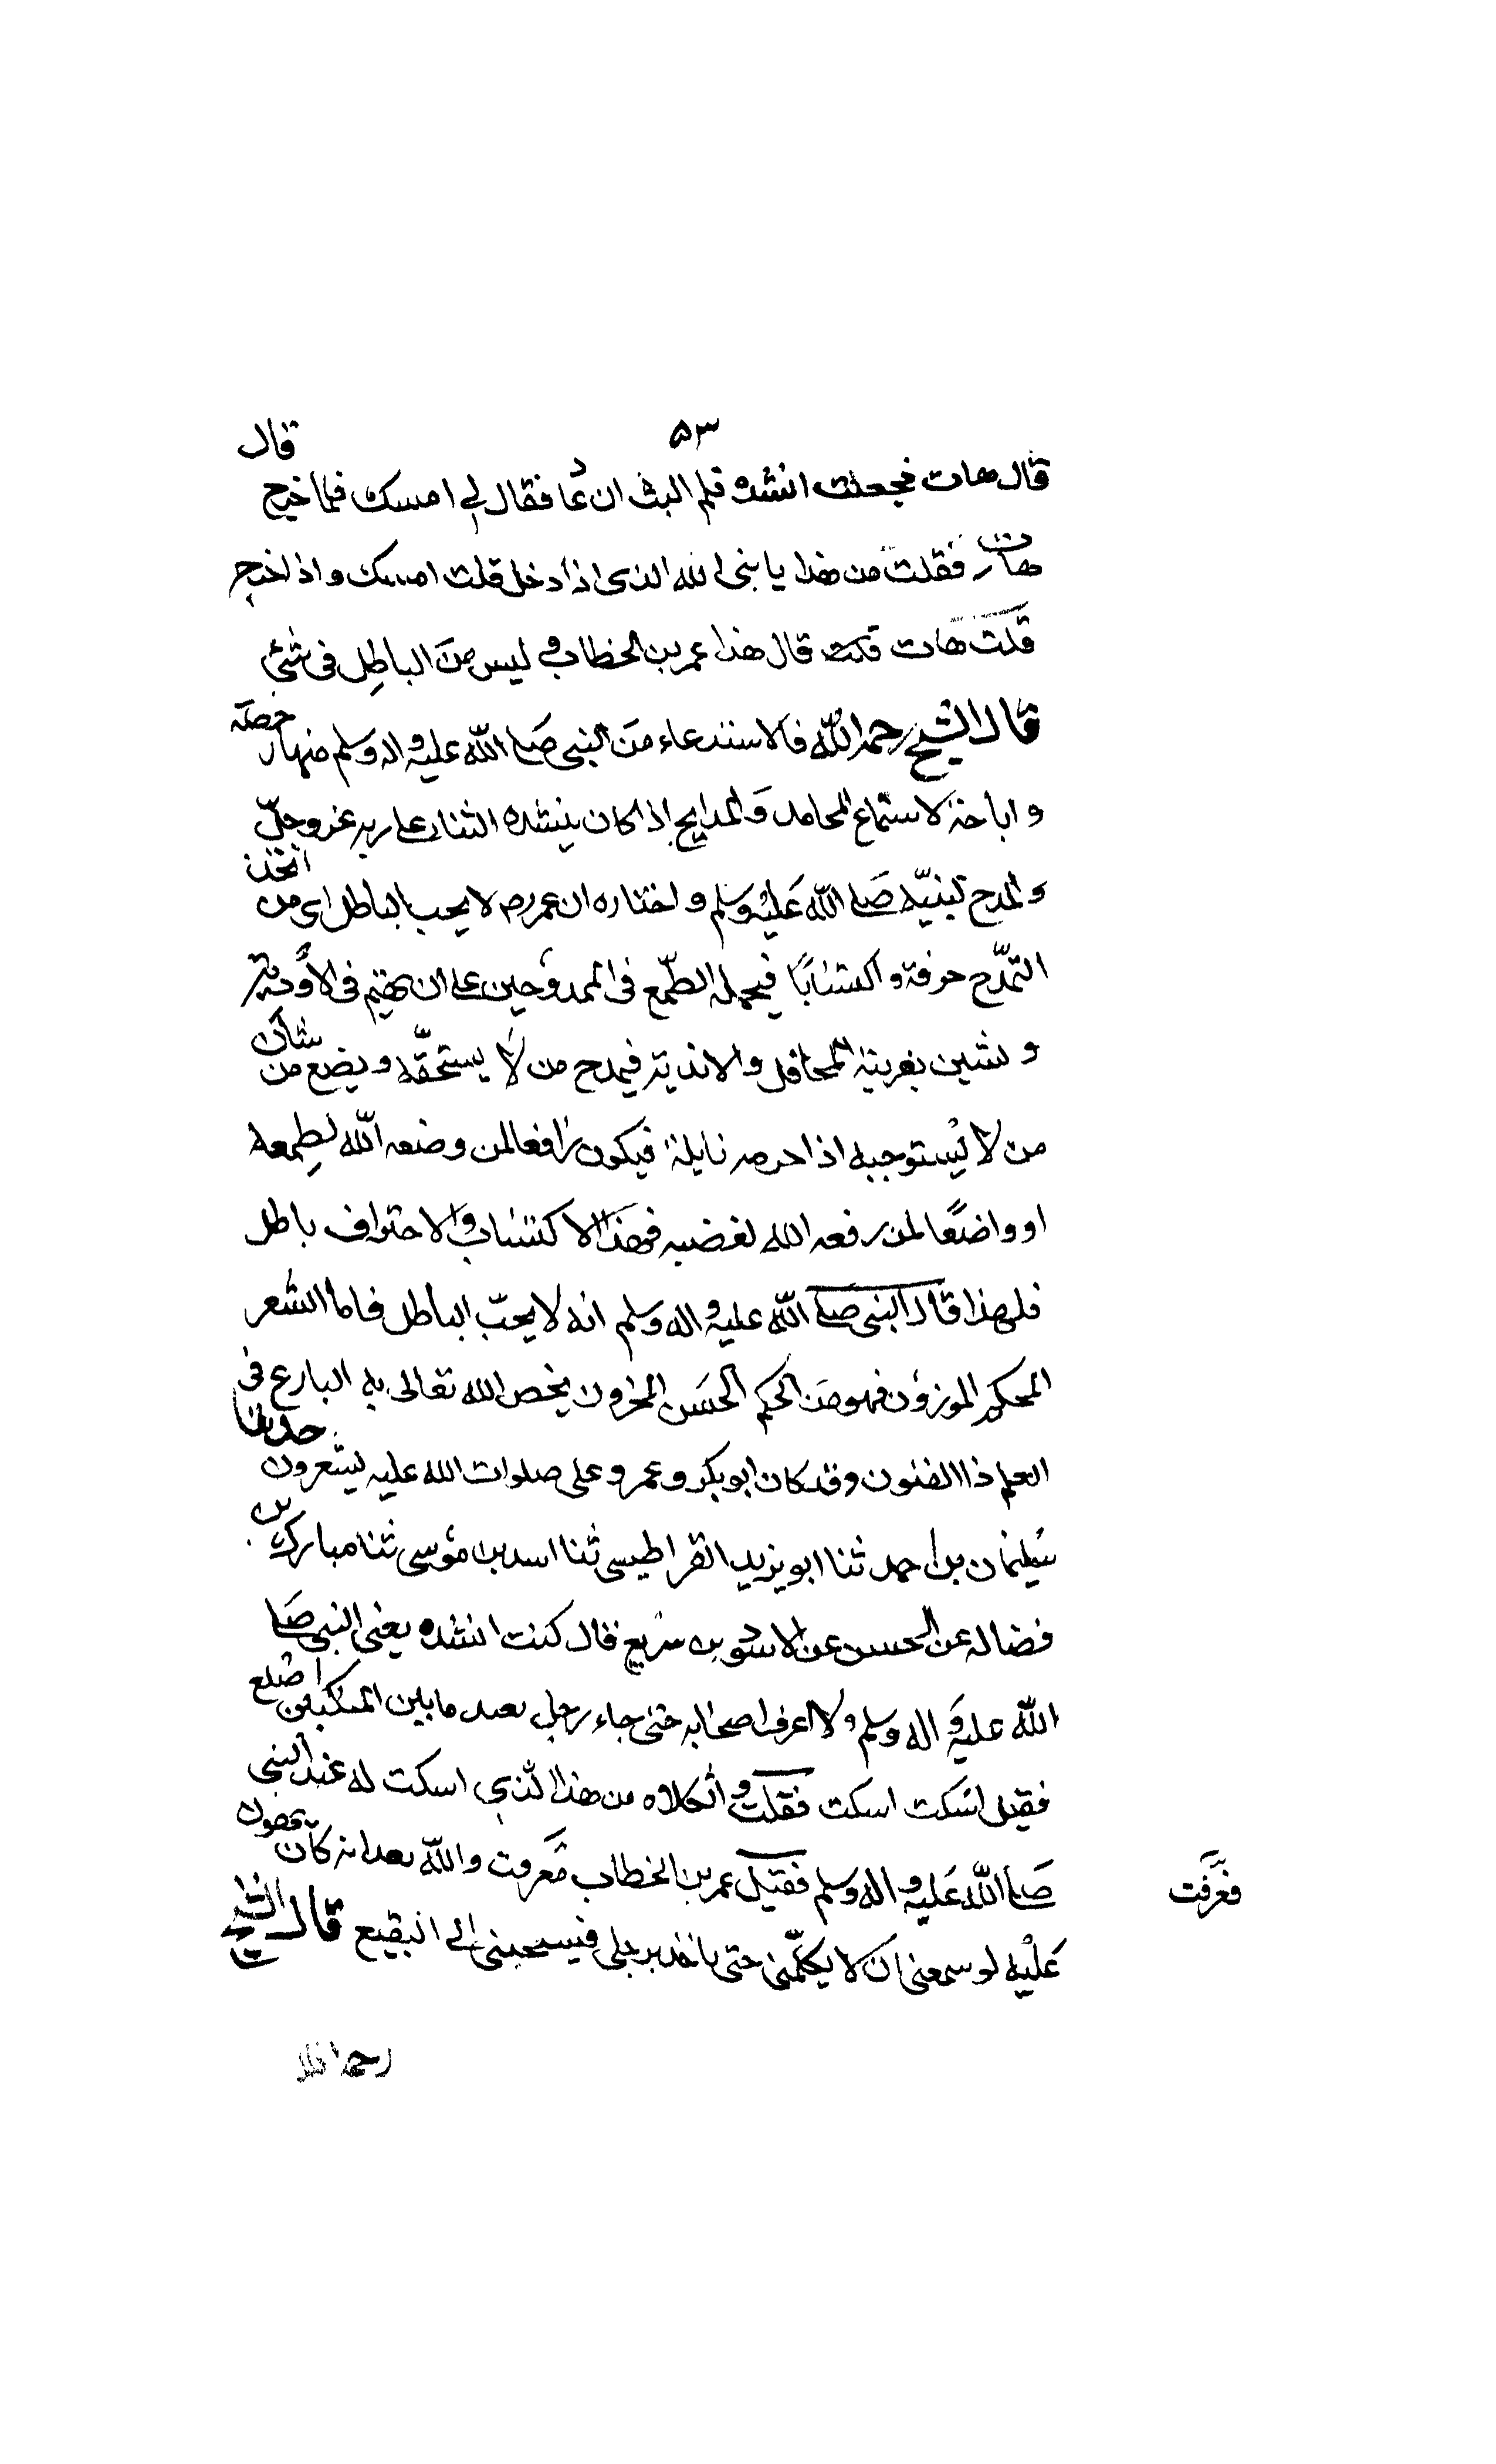 ٥٣
قال هات فجعلت انشده فلم البث ان دعا فقال لي امسك فلما خرج قال
هات فقلت من هذا يا نبى الله الذى اذا دخل قلت امسك و اذا خرج
قلت هات قلت قال هذا عمر بن الخطاب و ليس من الباطل فى شئ
قال الشيخ رحمه الله فالاستدعاء من النبى صلى الله عليه و اله وسلم منها رخصة
و اباحة لاستماع المحامد و المدايح اذا كان ينشده الثناء على ربه عز وجل
و المدح لنبيه صلى الله عليه وسلم و اختاره ان عمر رض لا يحب الباطل اى من اتخذ
التمدح حرفة و اكتسابا فيحمله الطمع فى الممدوحين على ان يهيم فى الاودية
و يشين بفريته المحافل و الاندية فيمدح من لا يستحقه و يضع من شان
من لا يستوجبه اذا حرمه نايلة فيكون رافعا لمن وضعه الله لطمعه
او واضعا لمن رفعه الله لغضبه فهذا الاكتساب و الاحتراف باطل
فلهذا قال النبى صلى الله عليه و اله وسلم انه لا يحب الباطل فاما الشعر
المحكم الموزون فهو من الحكم الحسن المخزون يخص الله تعالى به البارع فى
العلم ذا الفنون وقد كان ابو بكر و عمر و على صلوات الله عليه يشعرون حدثنا
سليمان بن احمد ثنا ابو يزيد القراطيسى ثنا اسد بن موسى ثنا مبارك بن
فضاله عن الحسن عن الاسود بن سريع قال كنت انشده يعنى النبى صلى
الله عليه و اله وسلم و لا اعرف اصحابه حتى جاء رجل بعيد ما بين المنكبين اصلع
فقيل اسكت اسكت فقلت و اثكلاه من هذا الذى اسكت له عند النبى
صلى الله عليه و اله وسلم فقيل عمر بن الخطاب فعرفت والله بعد انه كان يهون
عليه لو سمعنى ان لا يكلمنى حتى ياخذ برجلى فيسحبنى الى البقيع قال الشيخ
فعرفت
رحمه الله